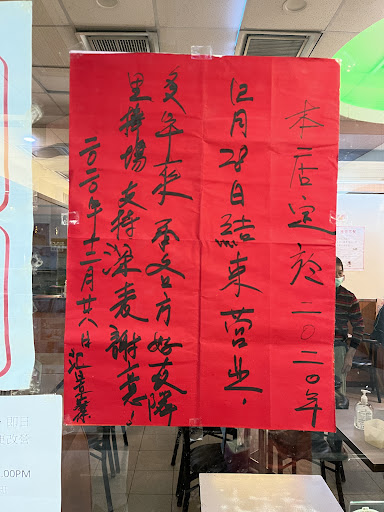 本店定於二〇二〇年
12月28日結束营业，
多年来承蒙各方好友隣
里捧場支持深表謝意！
二〇二〇年十二月廿八日
.00PM